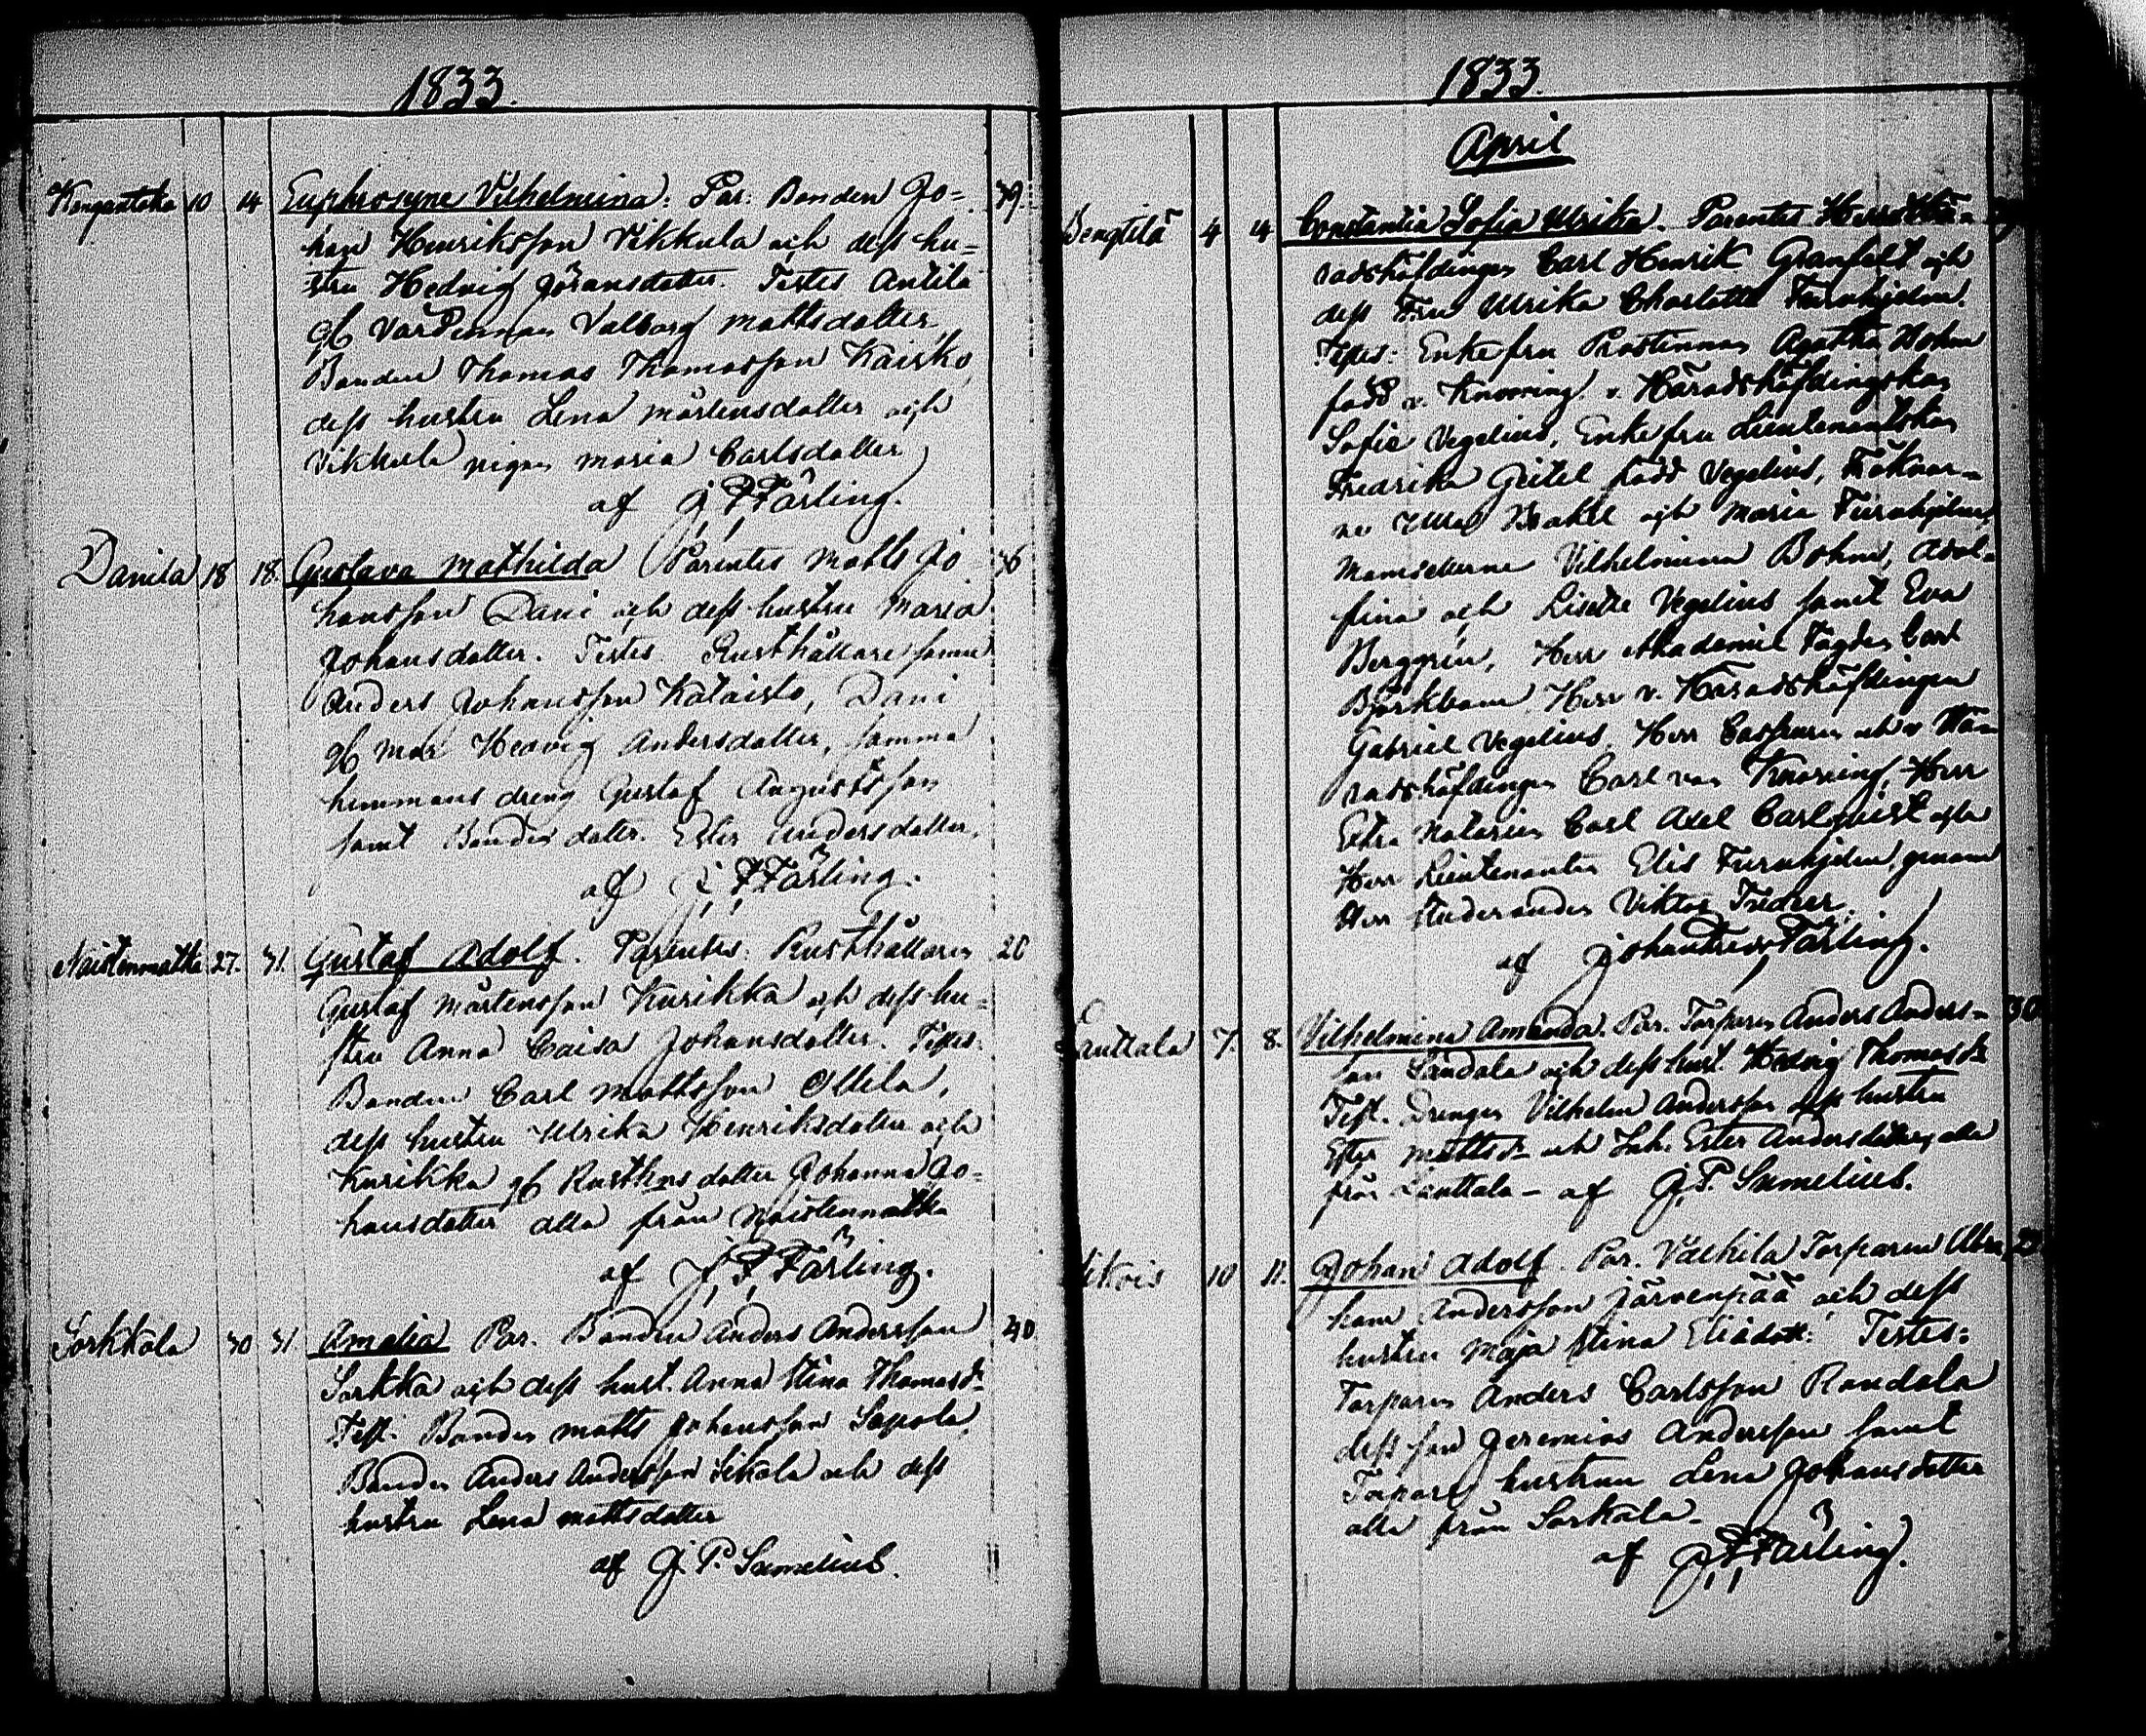 1833.
Kangantaka 10 14 Euphrosyne Vilhelmina. Par: Bonden Jo= 39.
han Henriksson Vikkula och dess hu=
stru Hedvig Göransdotter. Testes Antila
gl Värdinnan Valborg Mattsdotter,
Bonden Thomas Thomasson Kaisko,
dess hustru Lena Mårtensdotter och
Vikkula pigan Maria Carlsdotter
af J. F. Färling.
Danila 18 18. Gustava Mathilda Parentes Matts Jo 36
hansson Dani och dess hustru Maria
Johansdotter. Testes Rusthållare sonen
Anders Johansson Kataisto, Dani
gl mor Hedvig Andersdotter, samma
hemmans dreng Gustaf Augustsson
samt Bonde dotter. Ester Andersdotter.
af J. F. Färling.
Naistenmatka 27. 31. Gustaf Adolf. Parentes: Rusthållaren 26
Gustaf Mårtensson Kurikka och dess hu=
stru Anna Caisa Johansdotter. Testes:
Bonden Carl Mattsson Ollila,
dess hustru Ulrika Henriksdotter och
Kurikka gl Rusthns dotter Johanna Jo=
hansdotter alla från Naistenmatka
af J. F. Färling.
Sorkkala 30 31. Amalia Par. Bonden Anders Andersson 40
Sorkka och dess hust. Anna Stina Thomasdr
Test: Bonden Matts Johansson Sepola,
Bonden Anders Andersson Sikala och dess
hustru Lena Mattsdotter
af G. P. Sumelius.
1833.
April
Bengtilä 4 4 Constantia Sofia Ulrika. Parentes Herr Hä=
radshöfdingen Carl Henrik Granfelt och
dess Fru Ulrika Charlotta Furuhjelm.
Testes: Enkefru Prostinnan Agatha Bohm
född v. Knorring. v. Häradshöfdingskan
Sofie Vegelius, Enkefru Lieutenantskan
Fredrika Geitel född Vegelius, Fröknar=
ne Ulla Brakel och Maria Furuhjelm,
Mamsellerne Vilhelmina Bohm, Adol=
fina och Lisette Vegelius samt Eva
Berggren, Herr Akademie Fogden Carl
Björkbom Herr v. Häradshöfdingen
Gabriel Vegelius, Herr och v Hä=
radshöfdingen Carl von Knorring, Herr
Extra Notarien Carl Axel Carlqvist och
Herr Lieutenanten Elis Furuhjelm,
Herr Studeranden Viktor
af Johan Färling.
Lauttala 7. 8. Vilhelmina Amanda. Par. Torparen Anders Anders= 30
son Sandala och dess hust. Hedvig Thomasdr
Test. Drengen Vilhelm Andersson dess hustru
Ester Mattsdr och Inh. Ester Andersdotter alla
från Lauttala – af G. P. Sumelius.
10 11. Johan Adolf. Par. Välkilä Torparen Abra
ham Andersson Järvenpää och dess
hustru Maja Stina Eliædott: Testes:
Torparen Anders Carlsson Randala
dess son Jeremias Andersson samt
Torpare hustrun Lena Johansdotter
alla från Sorkala –
af J. F. Färling.